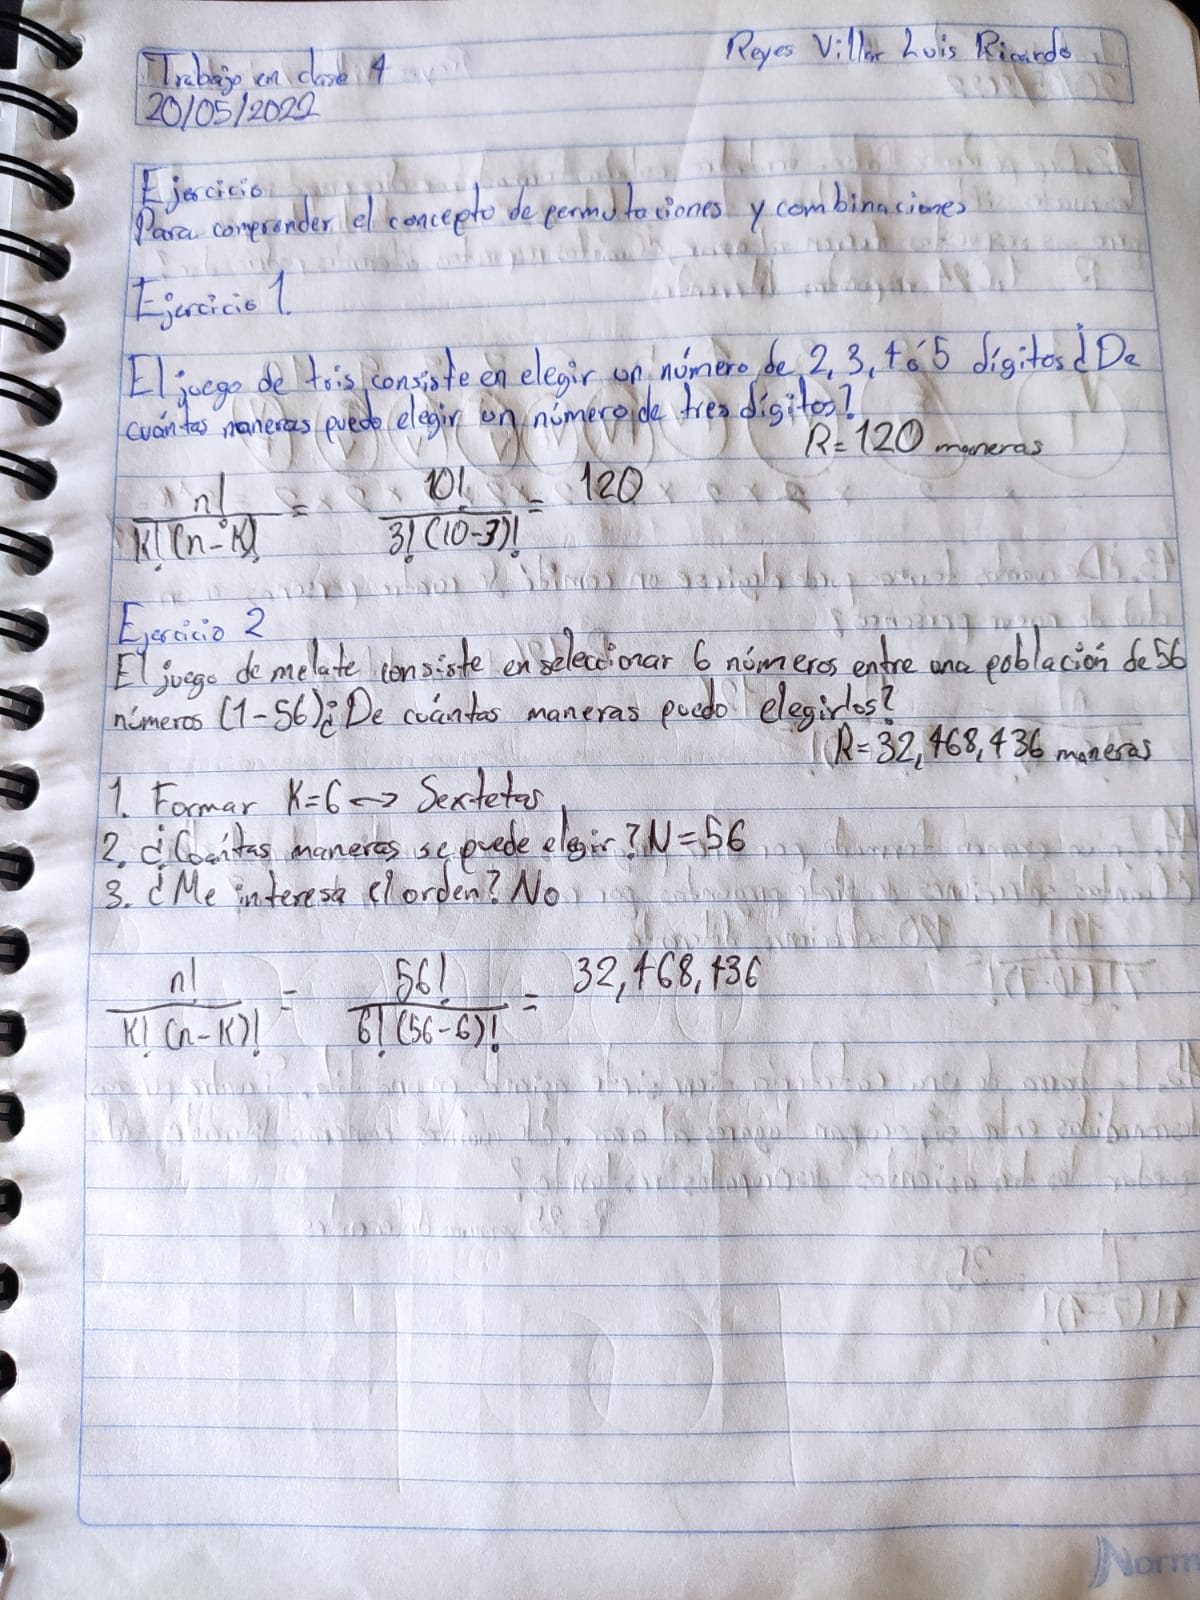 Reyes Villar Luis Ricardo
Trabajo en clase 4
20/05/2022
Ejercicio
Para comprender el concepto de permutaciones y combinaciones
Ejercicio 1.
El juego de tris consiste en elegir un número de 2, 3, 4 ó 5 dígitos ¿De
cuántas maneras puedo elegir un número de tres dígitos?
R=120 maneras
n!/K!(n-K)! = 10!/3!(10-3)! = 120
Ejercicio 2
El juego de melate consiste en seleccionar 6 números entre una población de 56
números (1-56)¿De cuántas maneras puedo elegirlos?
R=32,468,436 maneras
1. Formar K=6 → Sextetas
2. ¿Cuántas maneras se puede elegir? N=56
3. ¿Me interesa el orden? No
n!/K!(n-K)! = 56!/6!(56-6)! = 32,468,436
Norm